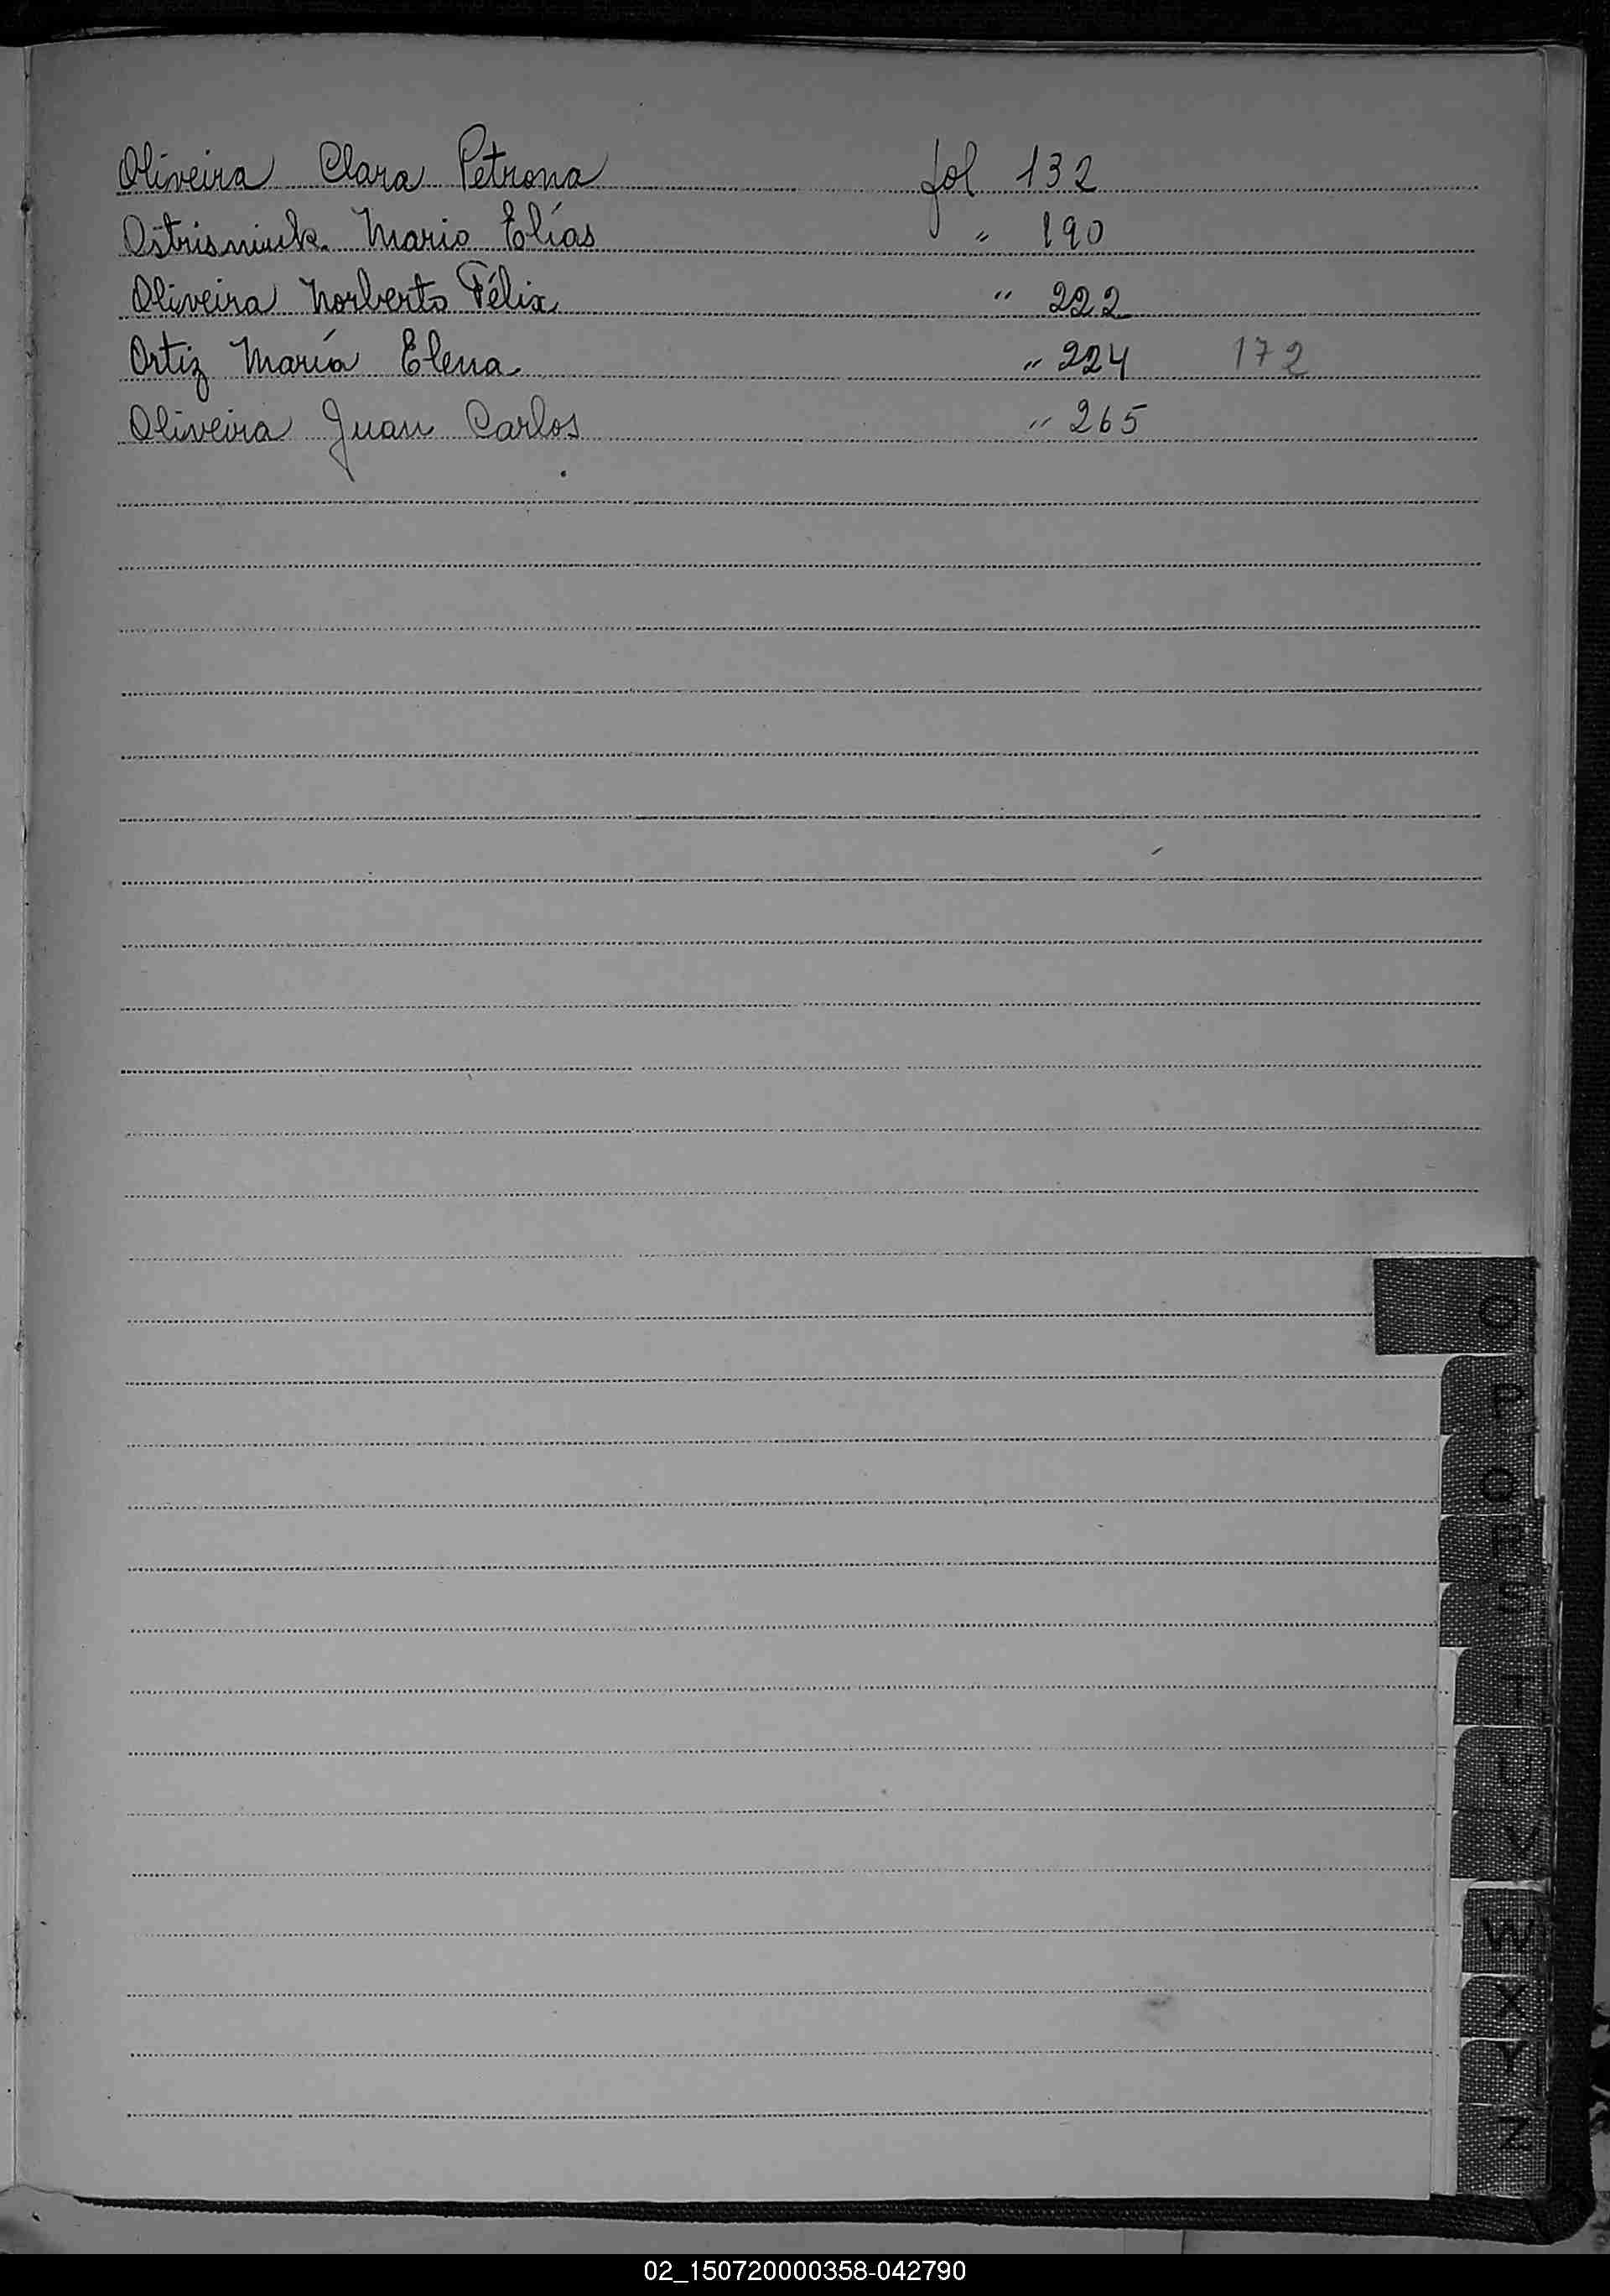 Oliveira Clara Petrona fol 132
Ostrisniuk Mario Elías " 190
Oliveira Norberto Félix " 222
Ortiz María Elena " 224 172
Oliveira Juan Carlos " 265
O
P
Q
R
S
T
U
V
W
X
Y
Z
02_150720000358-042790